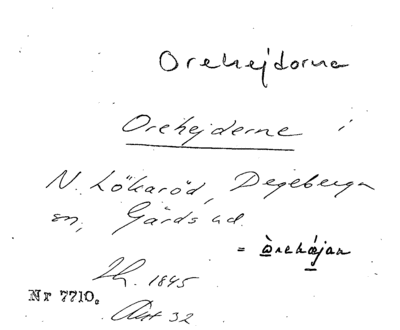 Orehejdorna
Orehejderne i
N. Lökaröd, Degeberga
sn, Gärds hd.
= òrehæjan
1845
Nr 7710.
Akt 32